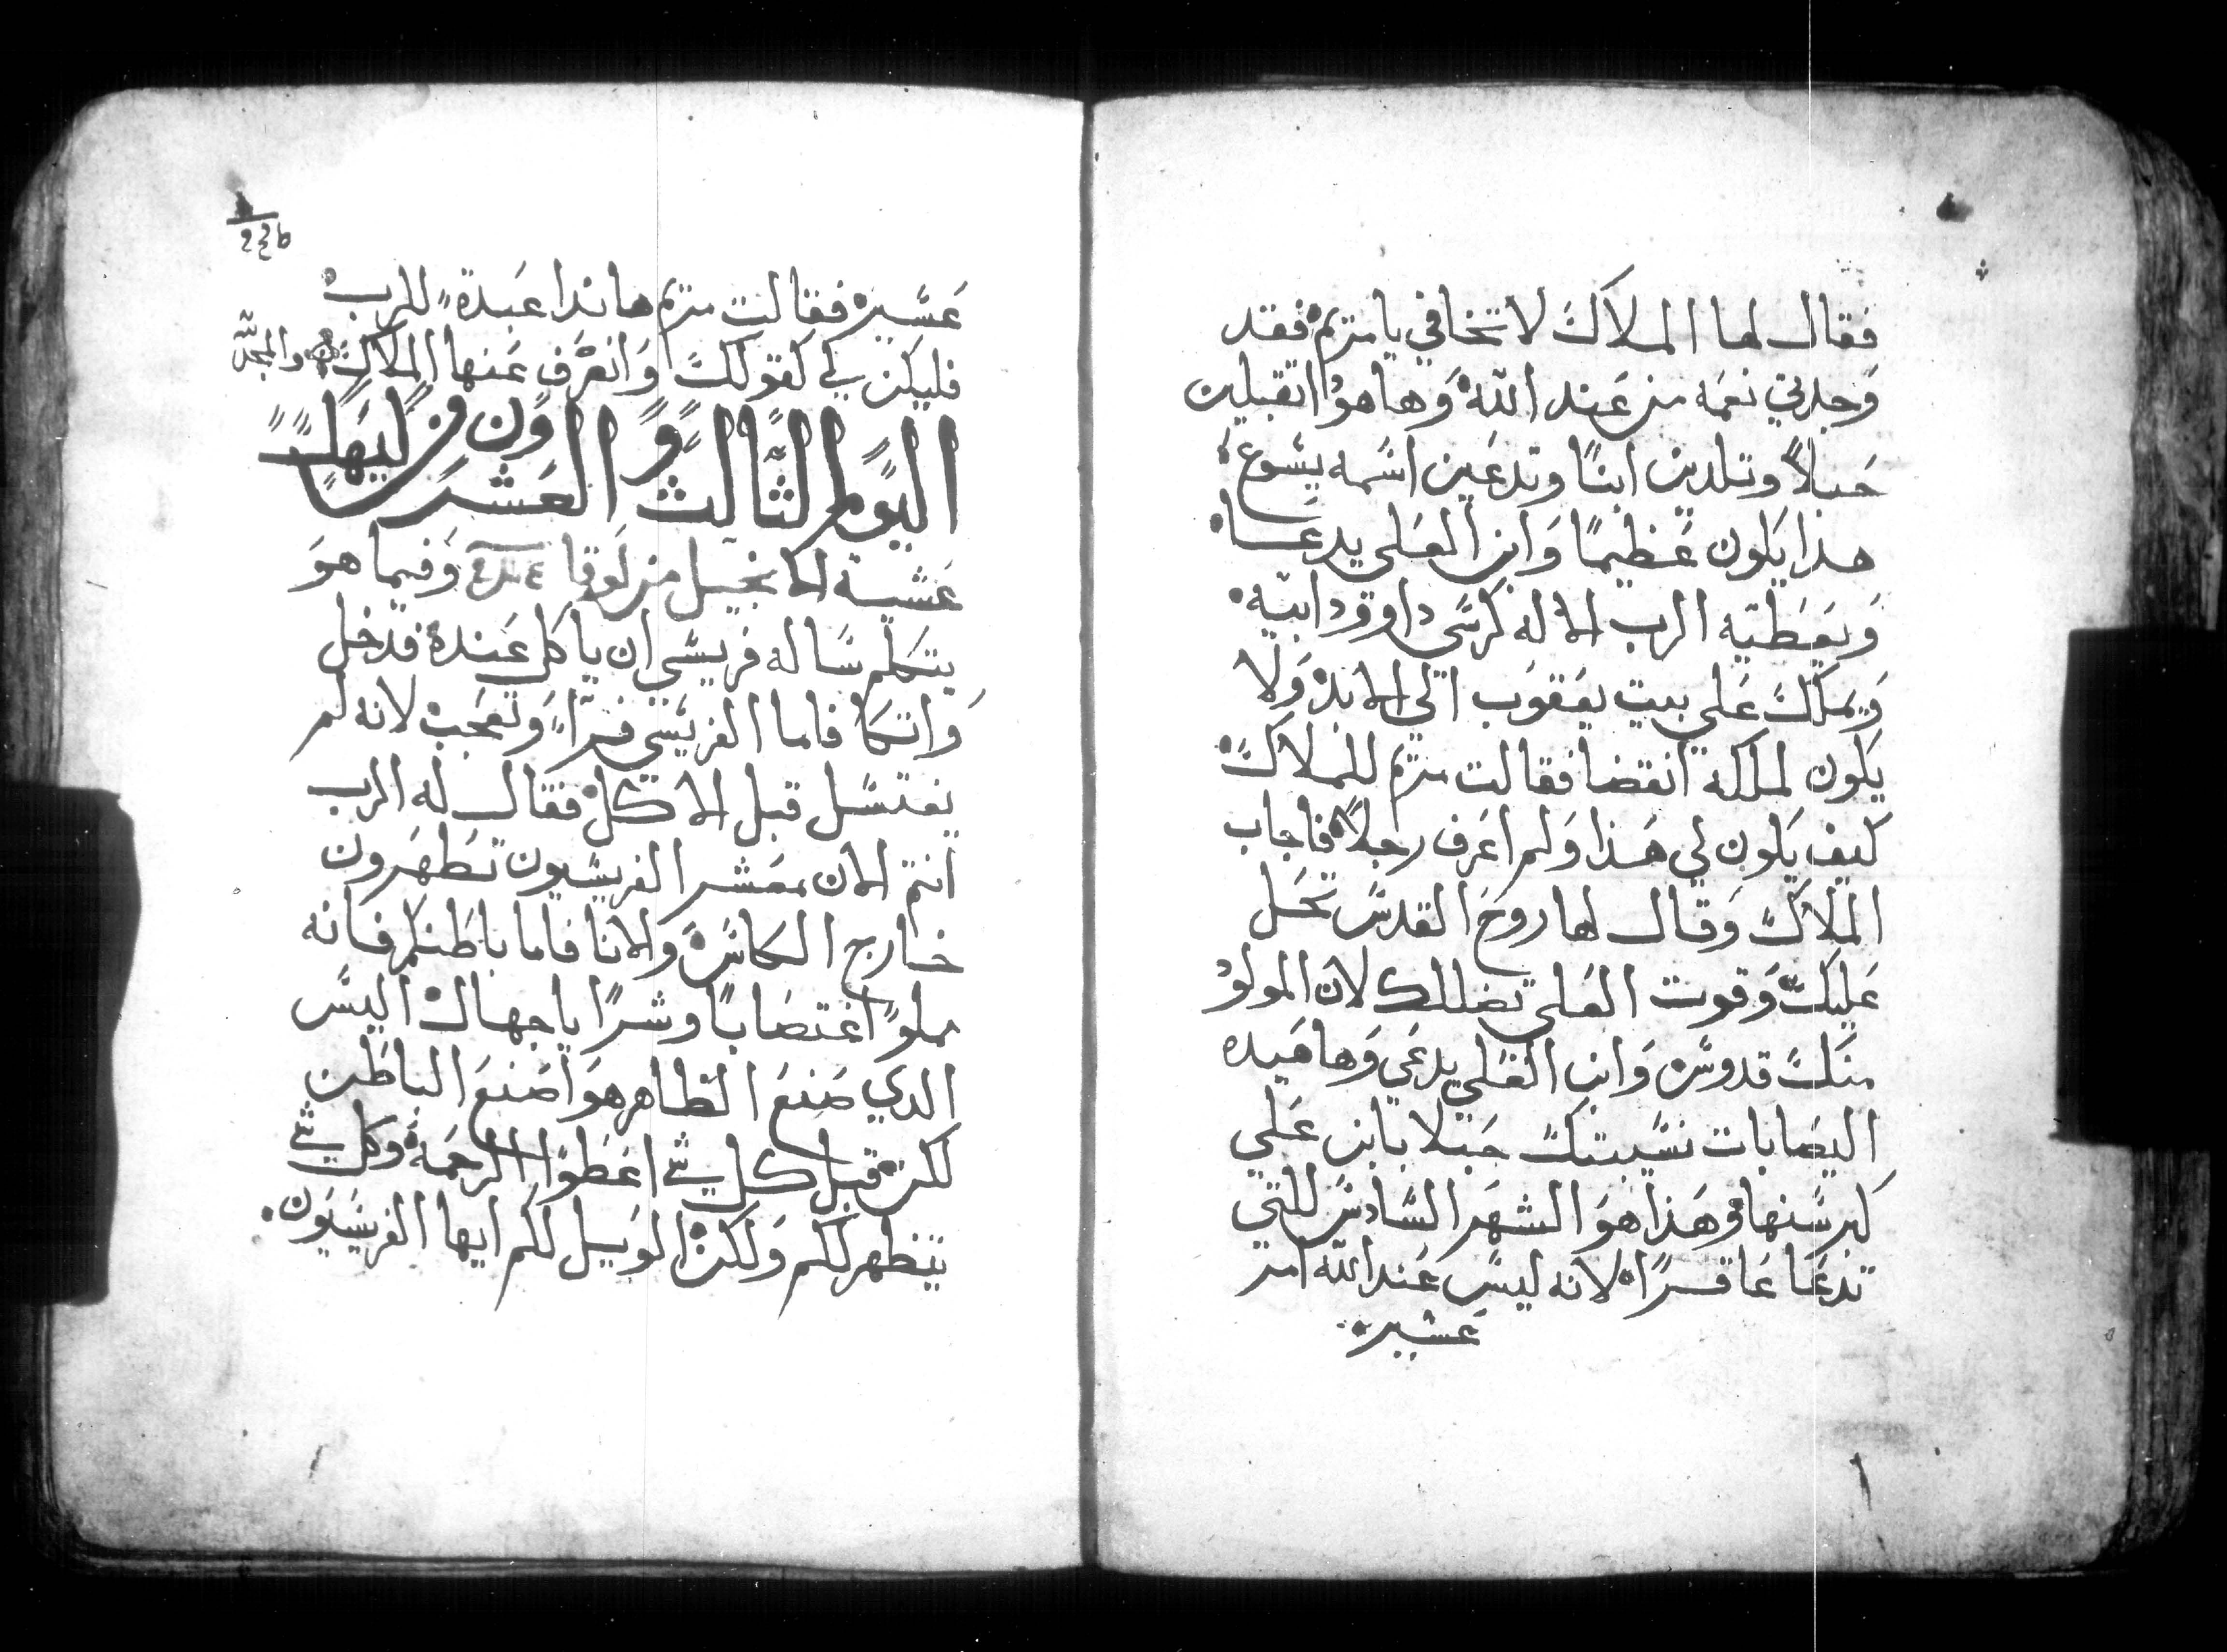 فقال لها الملاك لا تخافي يا مريم فقد
وجدتي نعمه من عند الله وها هو اتقبلين
حبلاً وتلدين ابنًا وتدعين اسمه يسوع
هذا يكون عظيمًا وابن العلي يدعا
ويعطيه الرب الاله كرسي داوود ابيه
ويملك علي بيت يعقوب الي الابد ولا
يكون لملكه انقضا فقالت مريم للملاك
كيف يكون لي هذا ولم اعرف رجلاً فاجاب
الملاك وقال لها روح القدس تحل
عليك وقوت العلي تضللك لان المولود
منك قدوس وابن العلي يدعي وها هيده
اليصابات نسيبتك حبلا بابن علي
كبر سنها وهذا هو الشهر السادس للتي
تدعا عاقرًا لانه ليس عند الله امر
عسير
عسير فقالت مريم هاندا عبدة للرب
فليكن لي كقولك وانصرف عنها الملاك والمجد لله
اليوم الثالث والعشرون من كيهك
عشية الانجيل من لوقا وفيما هو
يتكلم ساله فريسي ان ياكل عنده فدخل
واتكا فاما الفريسي فراء وتعجب لانه لم
يغتسل قبل الاكل فقال له الرب
انتم الان معشر الفريسيون تطهرون
خارج الكاس والانا فاما باطنكم فانه
مملو اغتصابًا وشرًا يا جهال اليس
الدي صنع الظاهر هو اصنع الباطن
لكن قبل كل شي اعطوا الرحمة وكل شي
يتظهر لكم ولكن الويل لكم ايها الفريسيون